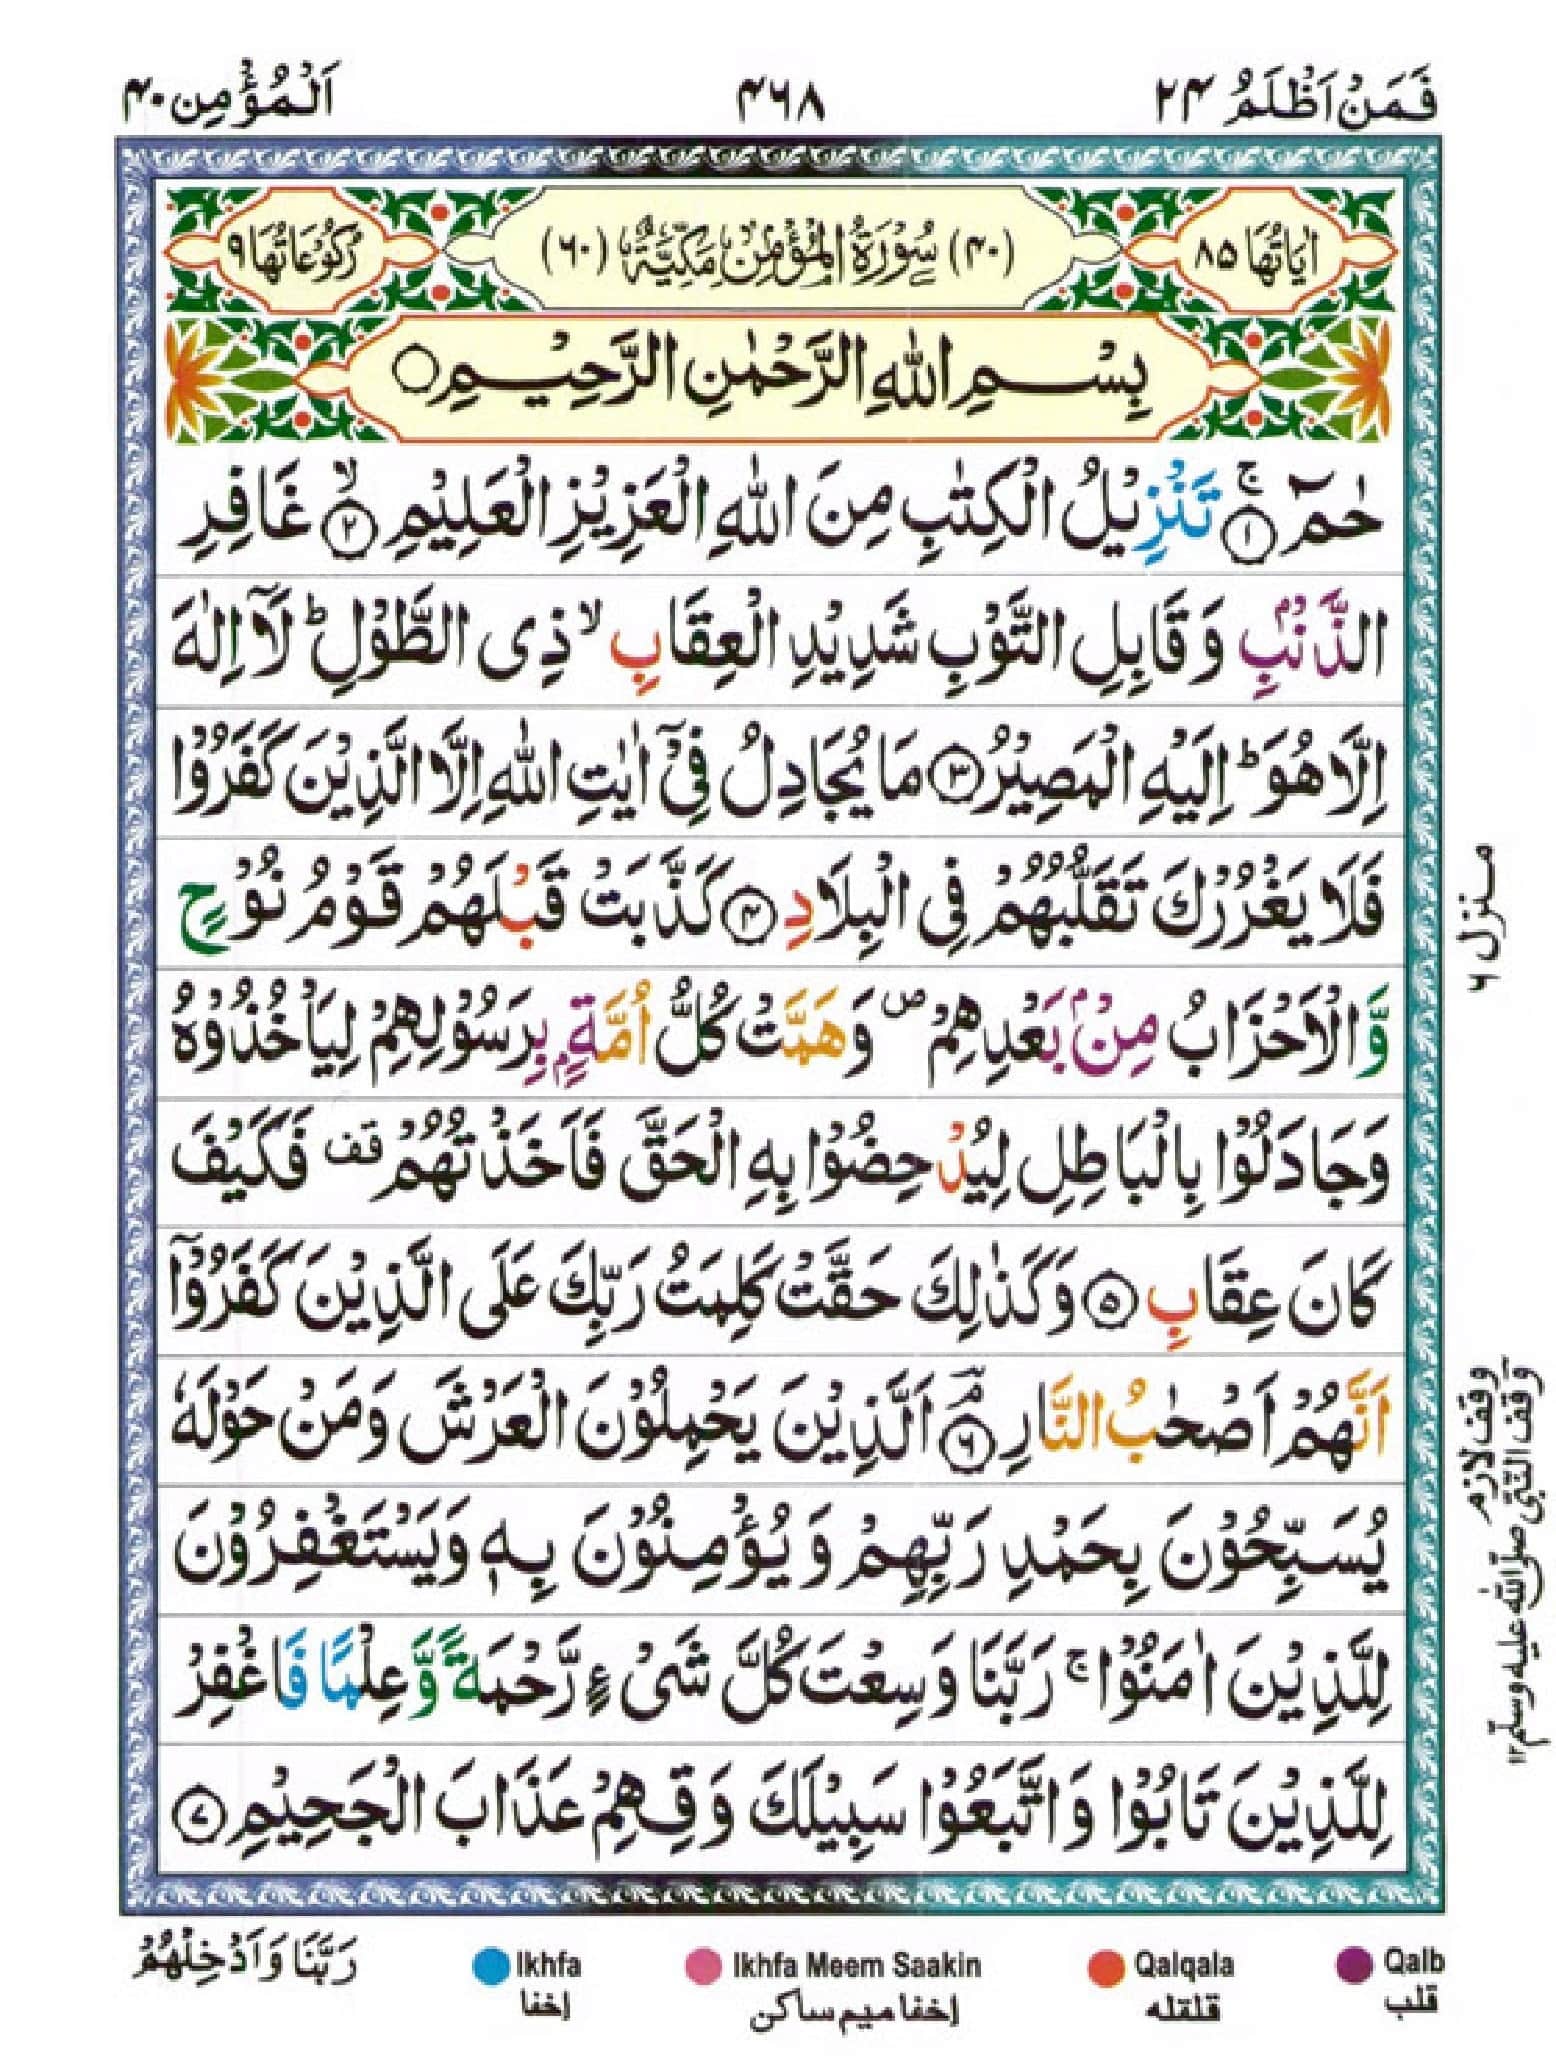 فَمَنْ اَظْلَمُ ۲۴
۴۶۸
اَلْمُؤْمِن ۴۰
اٰيَاتُهَا ۸۵
(۴۰) سُوْرَةُ الْمُؤْمِنِ مَكِّيَّةٌ (۶۰)
رُكُوْعَاتُهَا ۹
بِسْمِ اللّٰهِ الرَّحْمٰنِ الرَّحِيْمِ ○
حٰمٓ ۚ﴿۱﴾ تَنْزِيْلُ الْكِتٰبِ مِنَ اللّٰهِ الْعَزِيْزِ الْعَلِيْمِ ۙ﴿۲﴾ غَافِرِ
الذَّنْۢبِ وَقَابِلِ التَّوْبِ شَدِيْدِ الْعِقَابِ ۙ ذِى الطَّوْلِ ؕ لَاۤ اِلٰهَ
اِلَّا هُوَ ؕ اِلَيْهِ الْمَصِيْرُ ﴿۳﴾ مَا يُجَادِلُ فِىْۤ اٰيٰتِ اللّٰهِ اِلَّا الَّذِيْنَ كَفَرُوْا
فَلَا يَغْرُرْكَ تَقَلُّبُهُمْ فِى الْبِلَادِ ﴿۴﴾ كَذَّبَتْ قَبْلَهُمْ قَوْمُ نُوْحٍ
وَّالْاَحْزَابُ مِنْۢ بَعْدِهِمْ ۪ وَهَمَّتْ كُلُّ اُمَّةٍۭ بِرَسُوْلِهِمْ لِيَاْخُذُوْهُ
وَجَادَلُوْا بِالْبَاطِلِ لِيُدْحِضُوْا بِهِ الْحَقَّ فَاَخَذْتُهُمْ قف فَكَيْفَ
كَانَ عِقَابِ ﴿۵﴾ وَكَذٰلِكَ حَقَّتْ كَلِمَتُ رَبِّكَ عَلَى الَّذِيْنَ كَفَرُوْۤا
اَنَّهُمْ اَصْحٰبُ النَّارِ ۘ﴿۶﴾ اَلَّذِيْنَ يَحْمِلُوْنَ الْعَرْشَ وَمَنْ حَوْلَهٗ
يُسَبِّحُوْنَ بِحَمْدِ رَبِّهِمْ وَيُؤْمِنُوْنَ بِهٖ وَيَسْتَغْفِرُوْنَ
لِلَّذِيْنَ اٰمَنُوْا ۚ رَبَّنَا وَسِعْتَ كُلَّ شَىْءٍ رَّحْمَةً وَّعِلْمًا فَاغْفِرْ
لِلَّذِيْنَ تَابُوْا وَاتَّبَعُوْا سَبِيْلَكَ وَقِهِمْ عَذَابَ الْجَحِيْمِ ﴿۷﴾
منزل ۶
وقف لازم
وقف النبی صلی اللہ علیہ وسلم ۱۲
رَبَّنَا وَاَدْخِلْهُمْ
Ikhfa
إخفا
Ikhfa Meem Saakin
إخفا میم ساکن
Qalqala
قلقله
Qalb
قلب